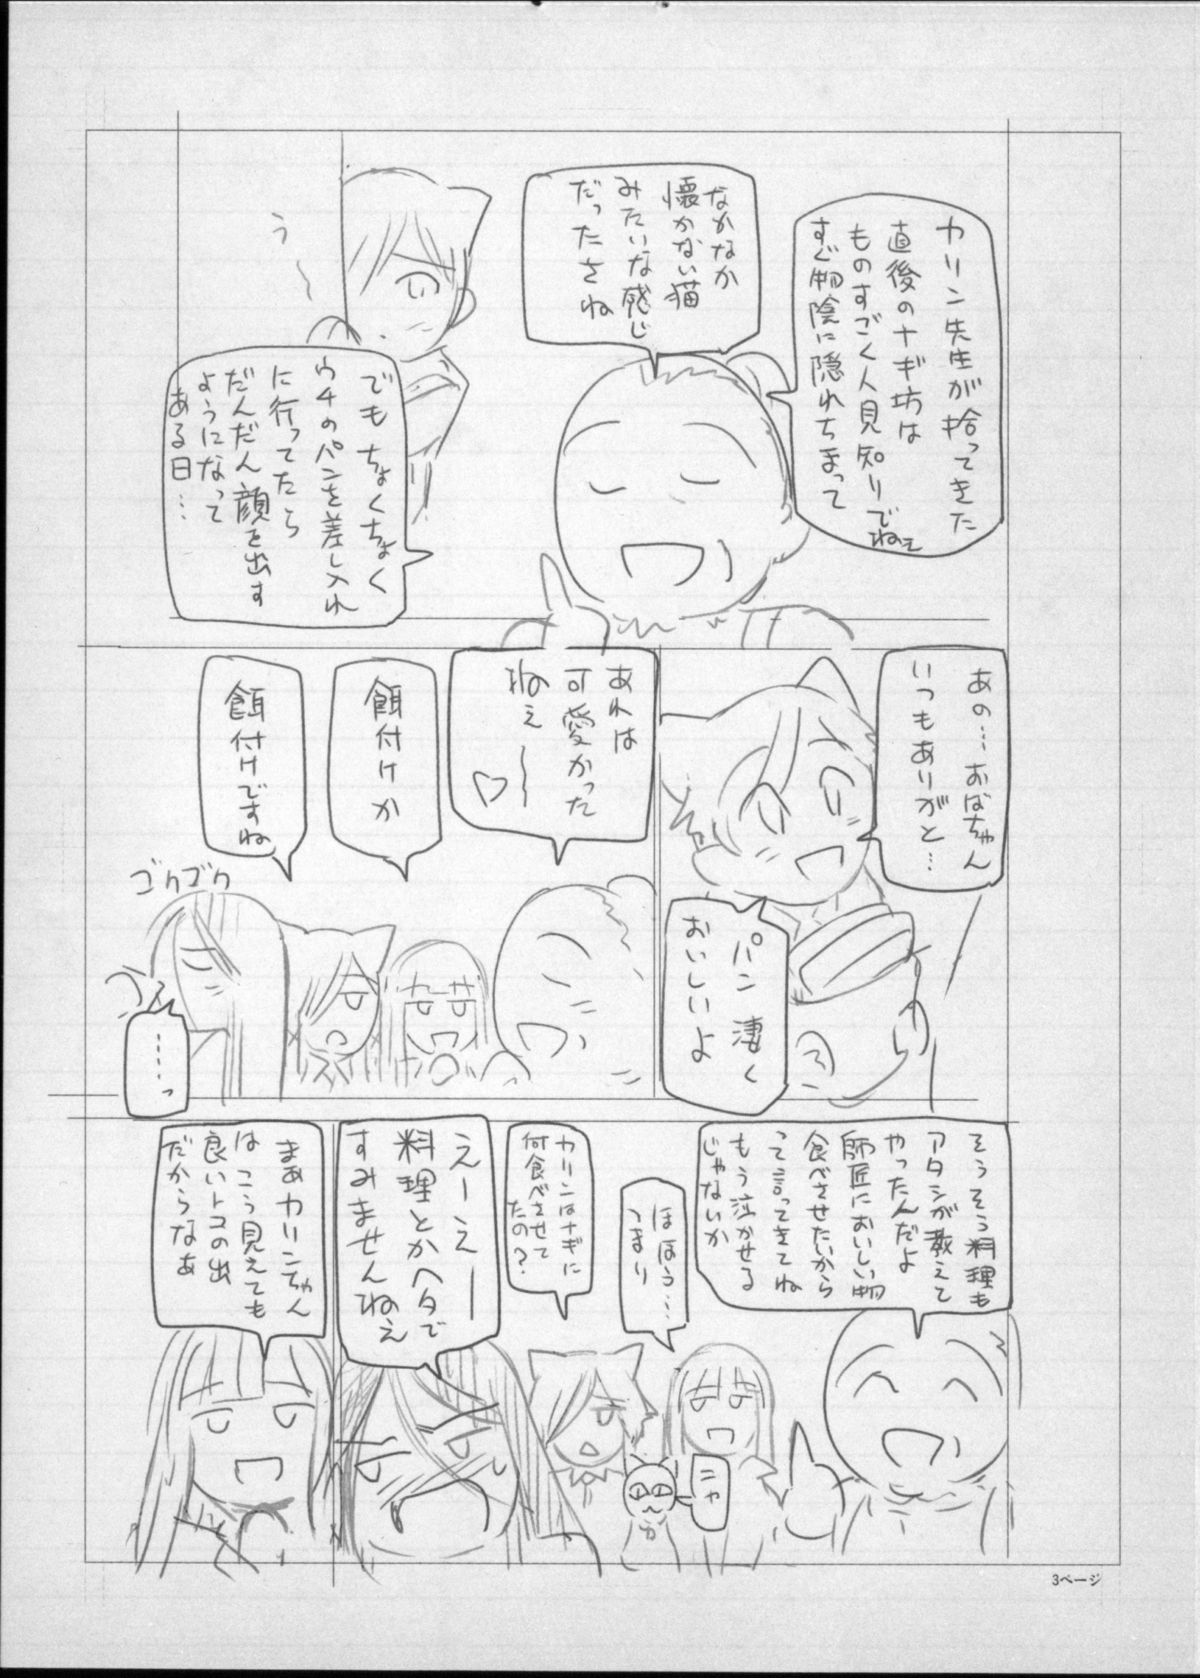 カリン先生が拾ってきた
直後のナギ坊は
ものすごく人見知りでねぇ
すぐ物陰に隠れちまって
なかなか
懐かない猫
みたいな感じ
だったさね
う〜
でもちょくちょく
ウチのパンを差し入れ
に行ってたら
だんだん顔を出す
ようになって
ある日…
あの…おばちゃん
いつもありがと…
パン凄く
おいしいよ
あれは
可愛かった
ねぇ〜♡
餌付けか
餌付けですね
ゴクゴク
……っ
そうそう料理も
アタシが教えて
やったんだよ
師匠においしい物
食べさせたいから
って言ってきてね
もう泣かせる
じゃないか
ほほう…
つまり
ニャ
カリンはナギに
何食べさせて
たの?
えーえー
料理とかヘタで
すみませんねえ
まあカリンちゃん
はこう見えても
良いトコの出
だからなぁ
3ページ